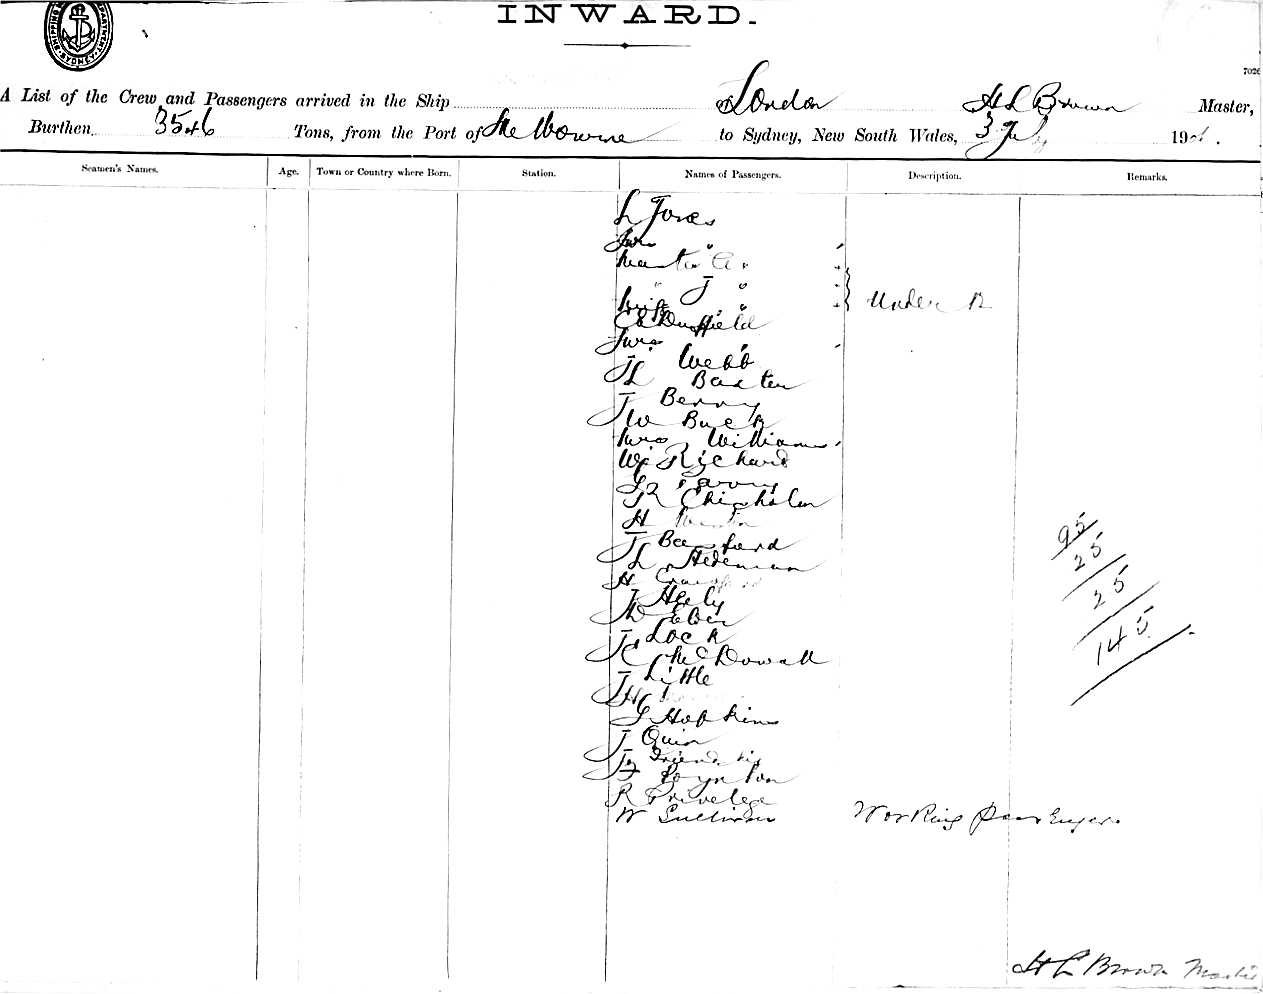 INWARD.
SHIPPING DEPARTMENT. SYDNEY
7026
A List of the Crew and Passengers arrived in the Ship London H L Brown Master,
Burthen 3546 Tons, from the Port of Melbourne to Sydney, New South Wales, 3 July 190
Seamen's Names. Age. Town or Country where Born. Station. Names of Passengers. Description. Remarks.
L Jones
Mrs "
Master A "
" J "
Under 12
E Duffield
Mrs "
J Webb
L Baxter
J Berry
W Buck
Mrs Williams
W Richard
R Chisholm
H
J Beresford
L Stedeman
H
J Healy
W Elder
J Lock
C McDowall
J Little
H
S Hopkins
J Quin
Boynton
R Privelege
W Sullivan Working Passengers
95
25
25
145
H L Brown Master